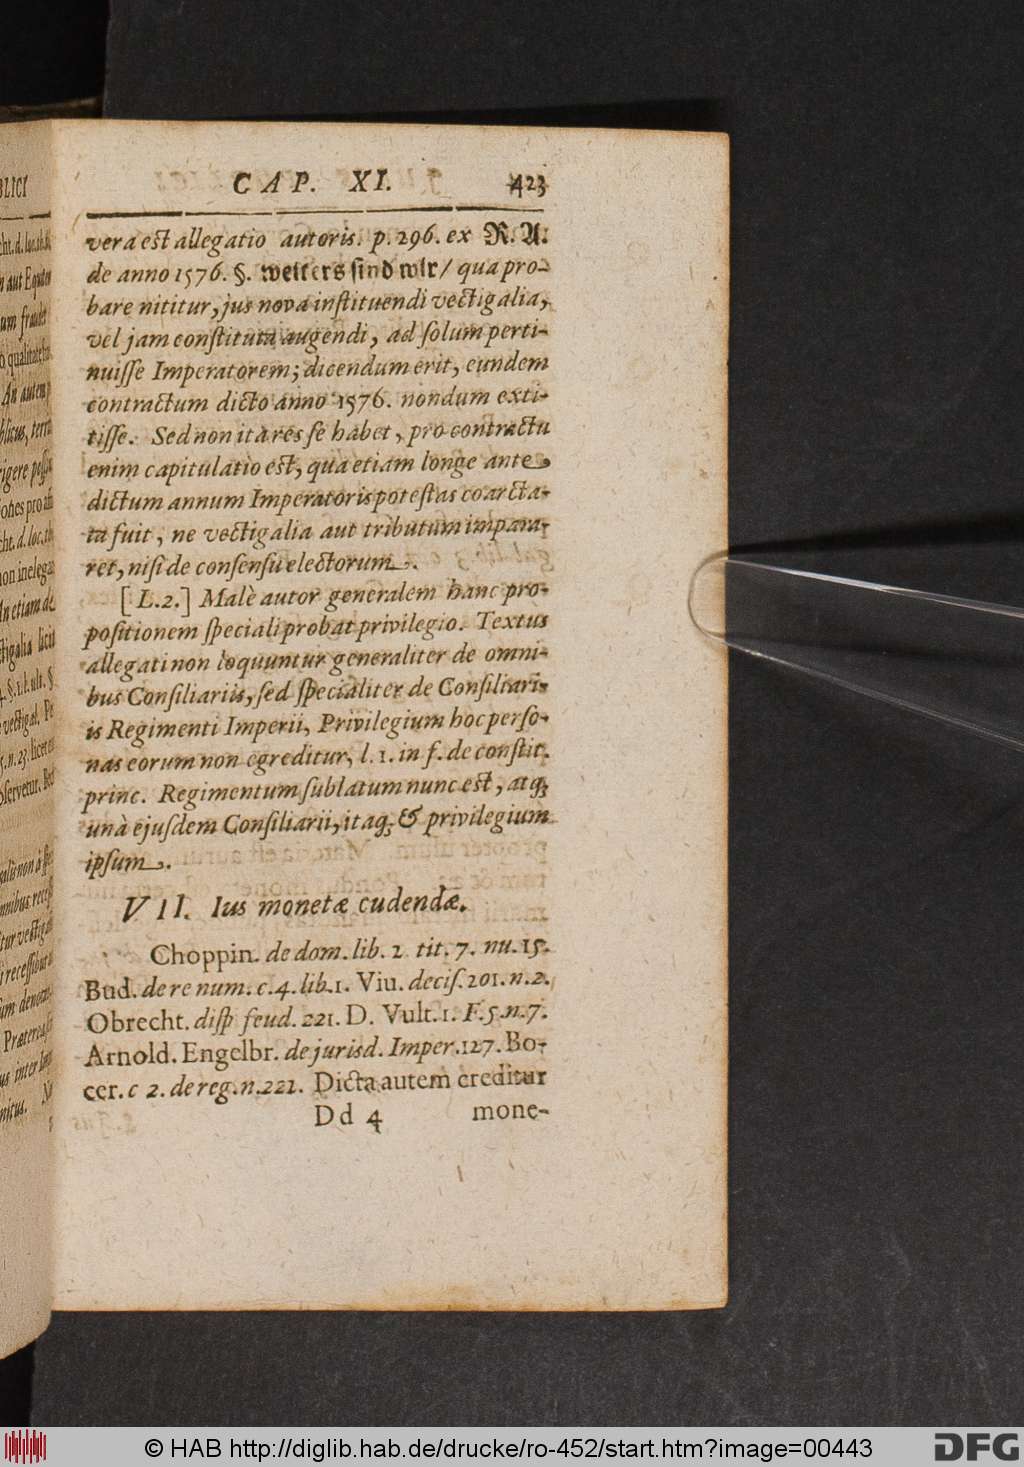 CAP. XI. 423
vera est allegatio autoris. p. 296. ex R. A.
de anno 1576. §. weiters sind wir / qua pro-
bare nititur, jus nova instituendi vectigalia,
vel jam constituta augendi, ad solum perti-
nuisse Imperatorem; dicendum erit, eundem
contractum dicto anno 1576. nondum exti-
tisse. Sed non ita res se habet, pro contractu
enim capitulatio est, qua etiam longe ante
dictum annum Imperatoris potestas coarcta-
ta fuit, ne vectigalia aut tributum impara-
ret, nisi de consensu electorum.
[L.2.] Malè autor generalem hanc pro-
positionem speciali probat privilegio. Textus
allegati non loquuntur generaliter de omni-
bus Consiliariis, sed specialiter de Consiliari-
is Regimenti Imperii, Privilegium hoc perso-
nas eorum non egreditur, l. 1. in f. de constit.
princ. Regimentum sublatum nunc est, atq;
unà ejusdem Consiliarii, itaq; & privilegium
ipsum.
VII. Ius monetæ cudendæ.
Choppin. de dom. lib. 2 tit. 7. nu. 15.
Bud. de re num. c. 4. lib. 1. Viu. decis. 201. n. 2.
Obrecht. disp feud. 221. D. Vult. 1. F. 5. n. 7.
Arnold. Engelbr. de jurisd. Imper. 127. Bo-
cer. c 2. de reg. n. 221. Dicta autem creditur
Dd 4 mone-
BLICI
© HAB http://diglib.hab.de/drucke/ro-452/start.htm?image=00443
DFG